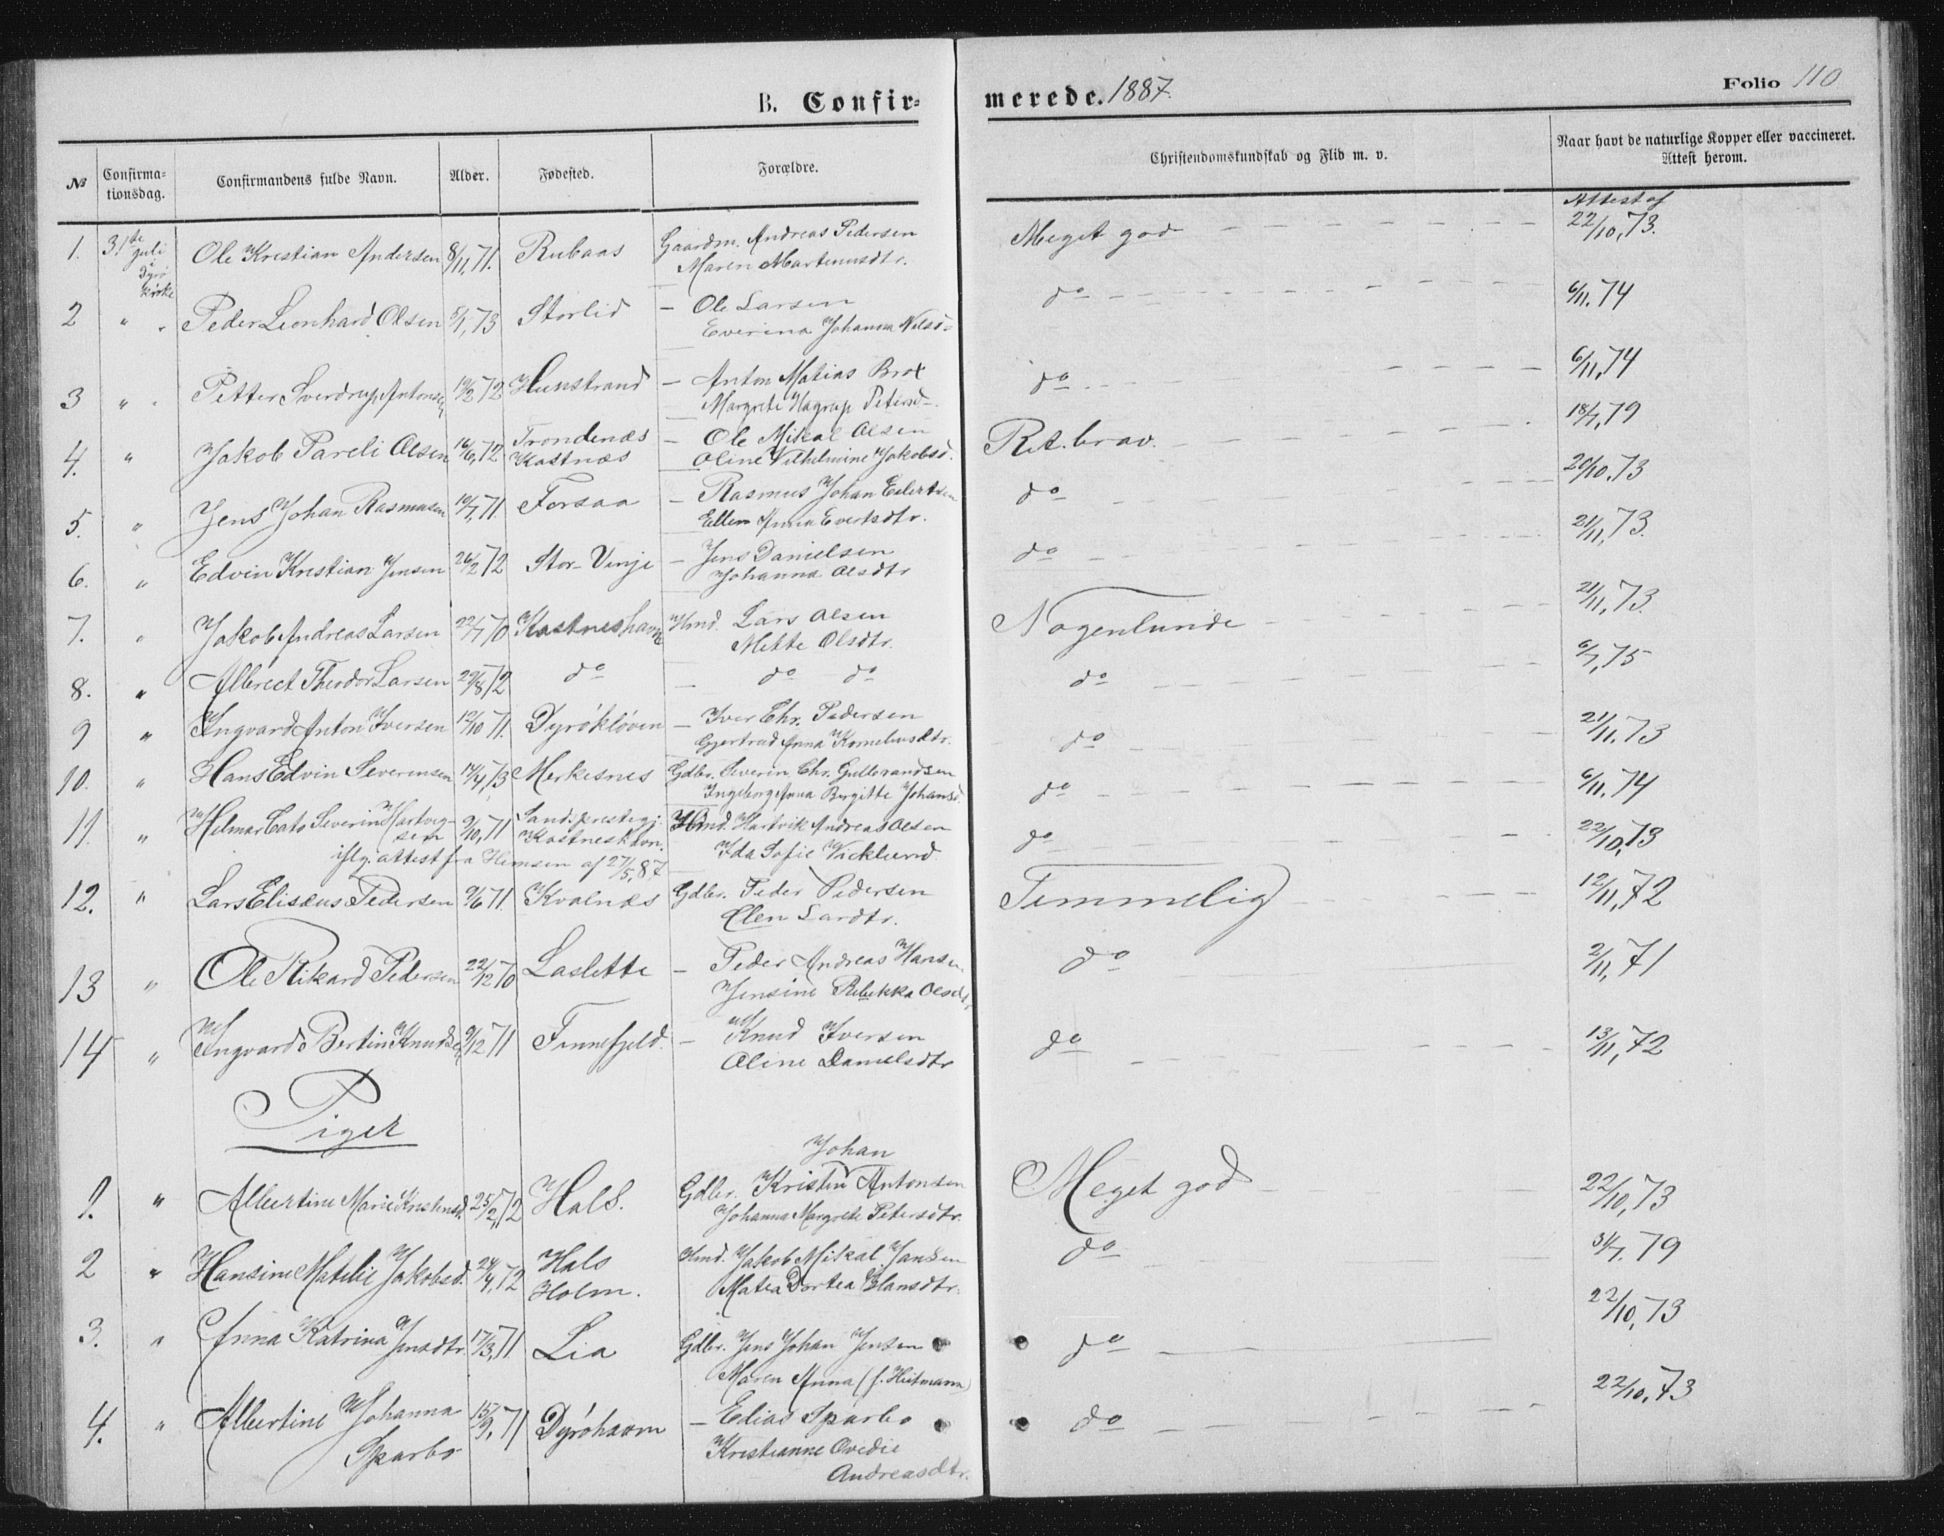 B. Confir-
merede. 1887.
Folio 110
№ Confirma-tionsdag. Confirmandens fulde Navn. Alder. Fødested. Forældre. Christendomskundskab og Flid m. v. Naar havt de naturlige Kopper eller vaccineret. Attest herom.
Attest af
1. 31te Juli Dyrø kirke Ole Kristian Andersen 8/11,71. Rubaas Gaardm. Andreas Pedersen Meget god 22/10,73.
Maren Martinusdtr.
2 " " Peder Leonhard Olsen 8/1,73 Storlid — Ole Larsen do 6/11.74
Everina Johanna Nilsd-
3 " " Petter Sverdrup Antonsen 19/2 72 Hunstrand — Anton Matias Brox do 6/11,74
Margrete Hagrup Petersd-
4. " Jakob Pareli Olsen 16/6,72 Trondenæs Kastnæs — Ole Mikal Olsen Ret. brav. 18/7,79
Oline Vilhelmine Jakobsd.
5. " Jens Johan Rasmusen 10/7,71. Forsaa — Rasmus Johan Eilertsen do 20/10,73
Ellen Anna Evertsdtr.
6. " Edvin Kristian Jensen 26/2 72 Stor-Vinje — Jens Danielsen do 21/11,73.
Johanna Olsdtr
7. " Jakob Andreas Larsen 22/7 70 Kastneshavn Hmd. Lars Olsen Nogenlunde 21/11,73.
Mette Olsdtr.
8. " Albrect Theodor Larsen 29/8 72 do — do do do 6/7,75
9 " Ingvard Anton Iversen 12/10 71. Dyrökløven — Iver Chr. Pedersen do 21/11.73
Gjertrud Anna Korneliusdtr.
10. " Hans Edvin Severinsen 14/4,73 Merkesnes Gdbr. Severin Chr. Gulbrandsen do 6/11.74
Ingeborg Anna Birgitte Johansd.
11. " Hilmar Cato Severin Hartvigsen 9/10,71 Sands prestegj. Kastneshavn. Hmd. Hartvik Andreas Olsen do 22/10,73
iflg. attest fra Hemsen af 27/5,87 Ida Sofie Vicklund
12. " Lars Elisæus Pedersen 9/6 71. Kvalnæs Gdbr. Peder Pedersen Temmelig 12/11,72
Elen Larsdtr.
13 " Ole Rikard Pedersen 22/12 70 Laslette — Peder Andreas Hansen do 2/11,71
Jensine Rebekka Olsdtr
14 " Ingvard Bertin Knudsen 9/12 71 Finnefjeld. — Knud Iversen do 13/11,72
Oline Danielsdtr
Piger
Johan
1. " Albertine Marie Kristensd. 25/2,72 Hals. Gdbr. Kristen Antonsen Meget god 22/10,73
Johanna Margrete Petersdtr.
2 " Hansine Matilie Jakobsd. 24/4,72 Hals Holm. Hmd. Jakob Mikal Jansen do 31/7.79
Matea Dortea Hansdtr.
3. " Anna Katrina Jensdtr. 17/3,71 Lia Gdbr. Jens Johan Jensen do 22/10,73
Maren Anna (f. Heitmann)
4. " Albertine Johanna Sparbo 15/9,71 Dyröhavn — Edias Sparbo do 22/10,73
Kristianne Ovedie
Andreasdtr.